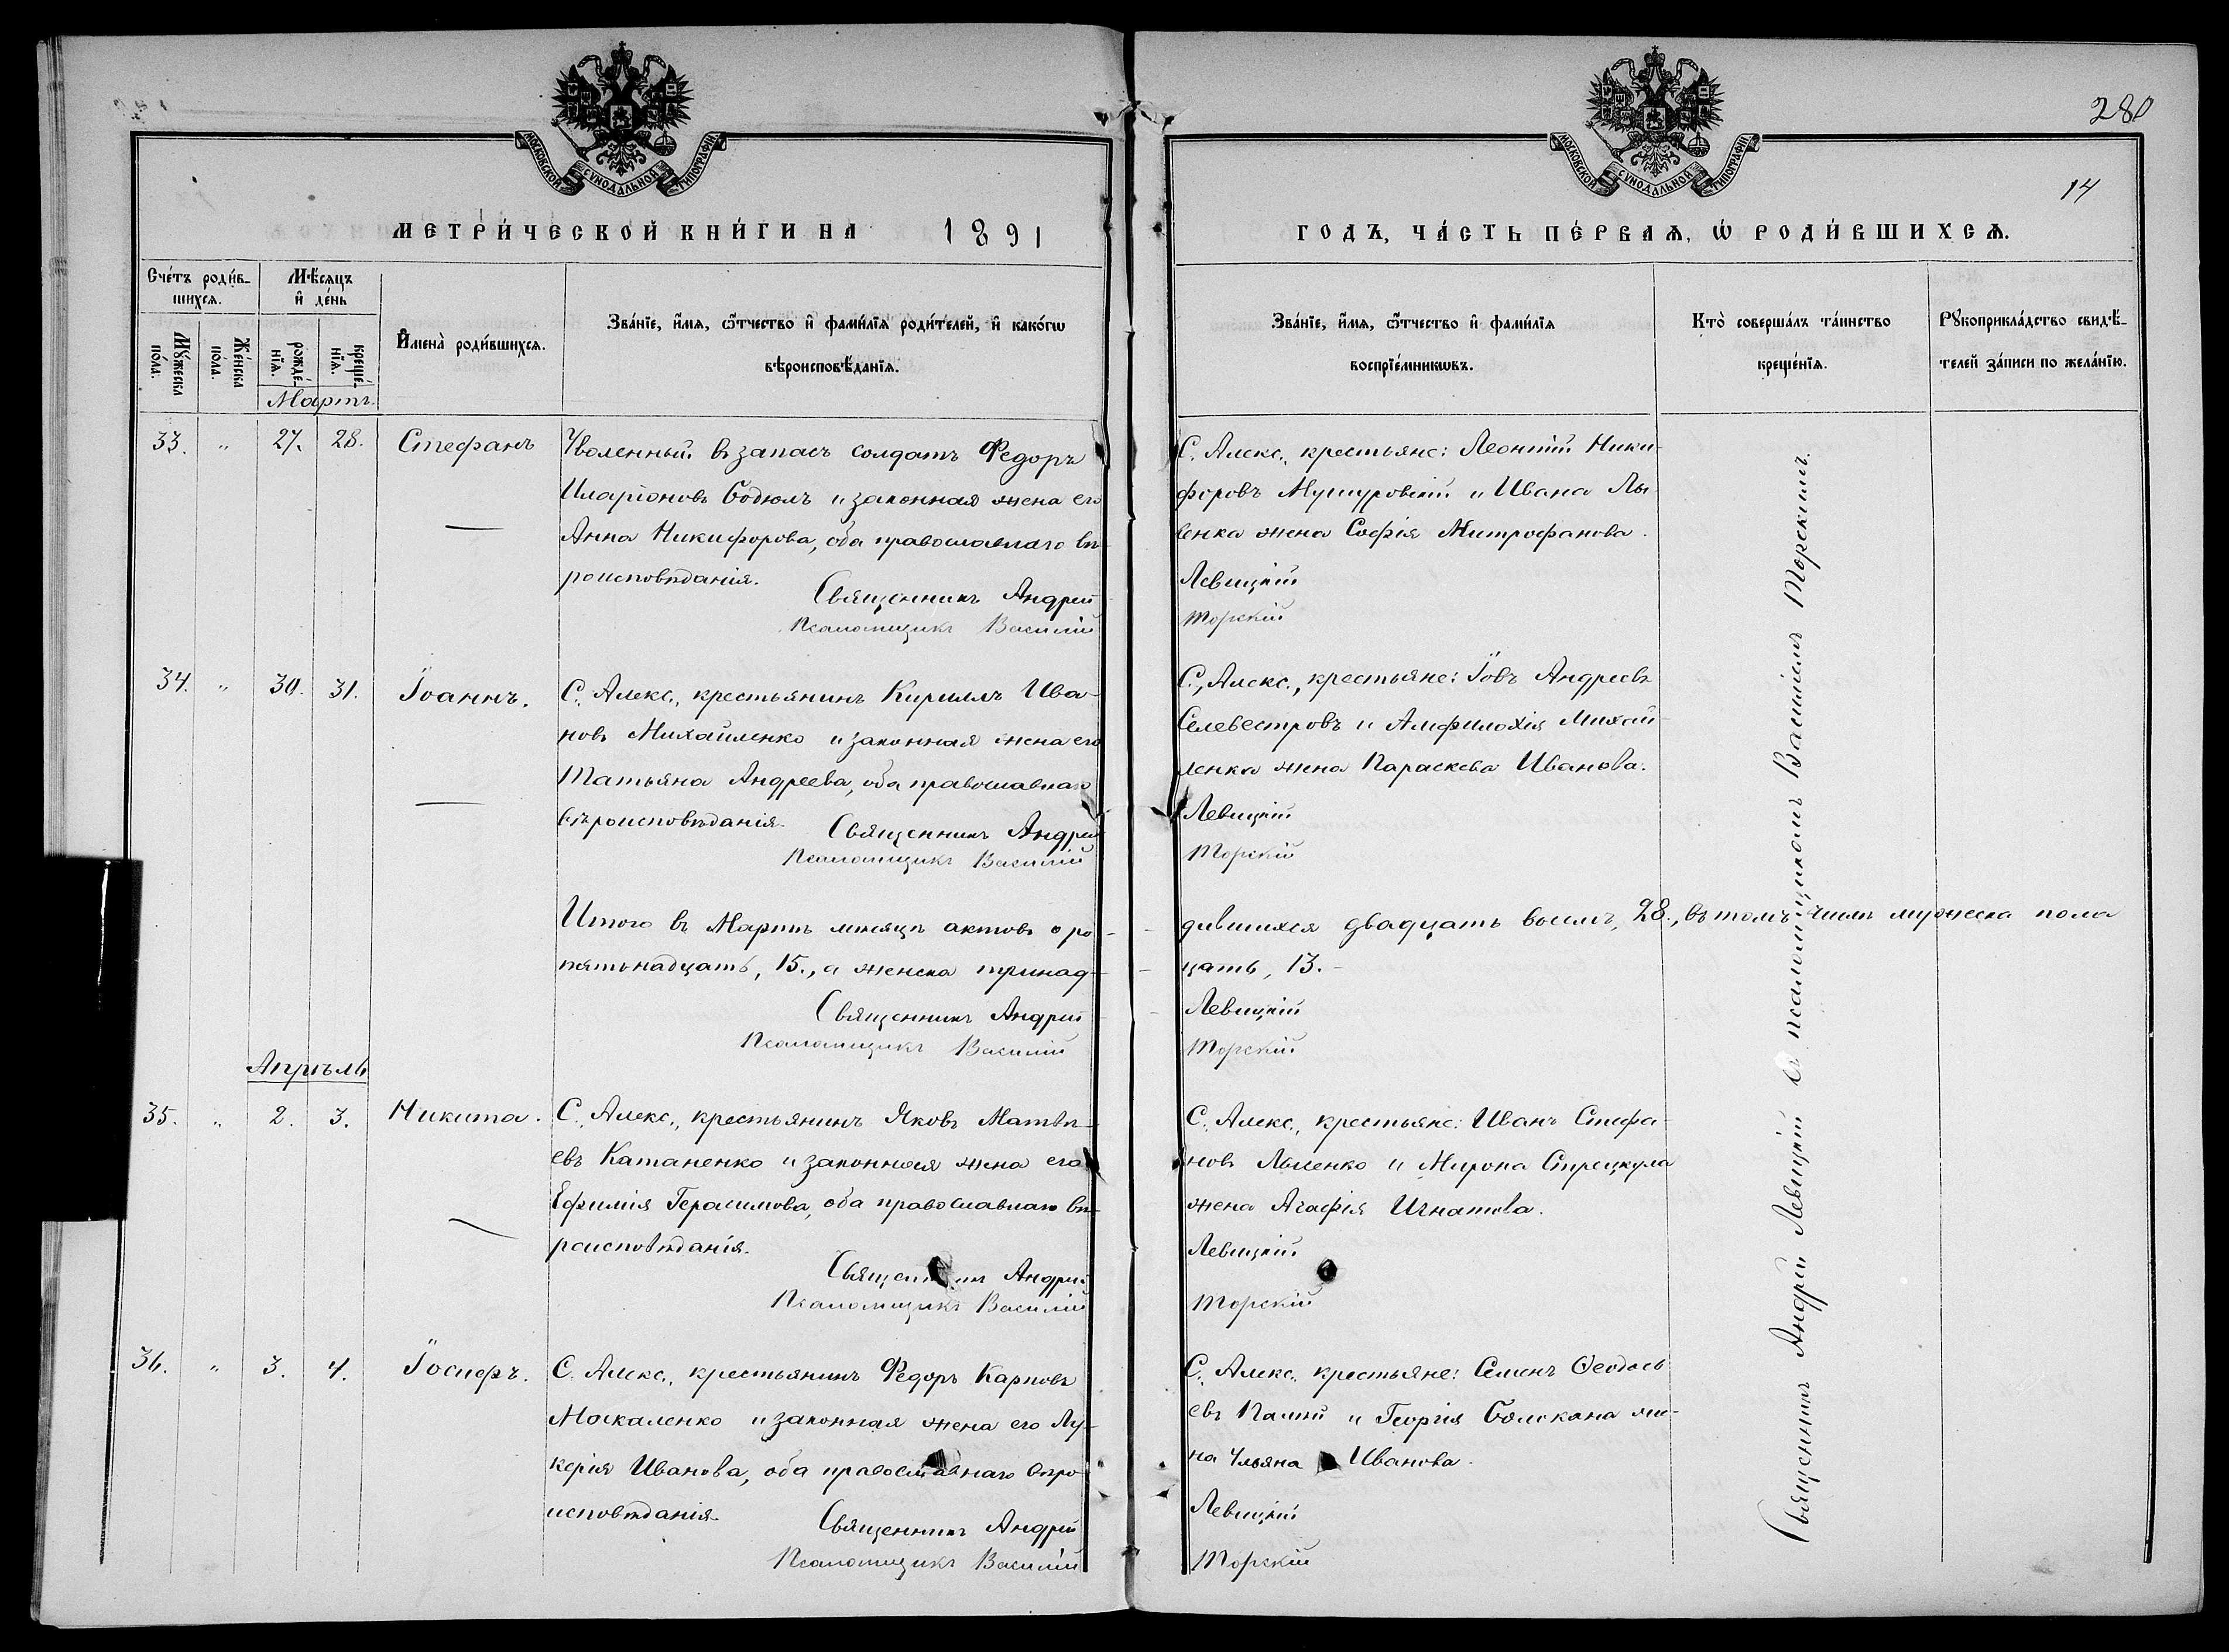 280
14
МОСКОВСКОЙ СѴНОДАЛЬНОЙ ТИПОГРАФІИ
МОСКОВСКОЙ СѴНОДАЛЬНОЙ ТИПОГРАФІИ
МЕТРИ́ЧЕСКОЙ КНИ́ГИ НА 1891
ГОДЪ, ЧА́СТЬ ПЕ́РВАѦ, Ѡ РОДИ́ВШИХСѦ.
Сче́тъ роди́в-
шихсѧ.
Мꙋ́жеска по́ла.
Же́нска по́ла.
Мѣ́сѧцъ
и҆ де́нь
рожде́-
нїѧ.
креще́-
нїѧ.
Мартъ.
И҆мена̀ роди́вшихсѧ.
Зва́нїе, и҆́мѧ, ѻ҆́тчество и҆ фами́лїѧ роди́телей, и҆ како́гѡ
вѣроисповѣ́данїѧ.
Зва́нїе, и҆́мѧ, ѻ҆́тчество и҆ фами́лїѧ
воспрїе́мникѡвъ.
Кто̀ соверша́лъ та́инство
креще́нїѧ.
Рꙋкоприкла́дство свидѣ́-
телей за́писи по жела́нїю.
33. " 27. 28. Стефанъ
Уволенный въ запасъ солдатъ Ѳедоръ
Иларіоновъ Бодюлъ и законная жена его
Анна Никифорова, оба православнаго вѣ-
роисповѣданія.
Священникъ Андрей
Псаломщикъ Василій
С. Алекс., крестьяне: Леонтій Ники-
форовъ и Ивана Лы
сенка жена Софія Митрофанова.
Левицкій
Торскій
34. " 30. 31. Іоаннъ.
С. Алекс., крестьянинъ Кириллъ Ива-
новъ Михайленко и законная жена его
Татьяна Андреева, оба православнаго
вѣроисповѣданія.
Священникъ Андрей
Псаломщикъ Василій
С. Алекс., крестьяне: Іовъ Андреевъ
Селевестровъ и Амфилохія Михай-
ленка жена Параскева Иванова.
Левицкій
Торскій
Итого въ Мартѣ мѣсяцѣ актовъ о ро-
дившихся двадцать восемь, 28., въ томъ числѣ мужеска пола
пятьнадцать, 15., а женска тринад-
цать, 13.-
Священникъ Андрей
Левицкій
Псаломщикъ Василій
Торскій
Апрѣль
35. " 2. 3. Никита.
С. Алекс., крестьянинъ Яковъ Матвѣ-
евъ Катаненко и законная жена его
Ефимія Герасимова, оба православнаго вѣ-
роисповѣданія.
Священникъ Андрей
Псаломщикъ Василій
С. Алекс., крестьяне: Иванъ Стефа-
новъ Лысенко и Мирона
жена Агафія Игнатова.
Левицкій
Торскій
36. " 3. 4. Іосифъ.
С. Алекс., крестьянинъ Ѳедоръ Карповъ
Москаленко и законная жена его Лу-
керія Иванова, оба православнаго вѣро-
исповѣданія.
Священникъ Андрей
Псаломщикъ Василій
С. Алекс. крестьяне: Семенъ Ѳеодось
евъ и Георгія же-
на Ульяна Иванова.
Левицкій
Торскій
Священникъ Андрей Левицкій съ псаломщикомъ Василіемъ Торскимъ.